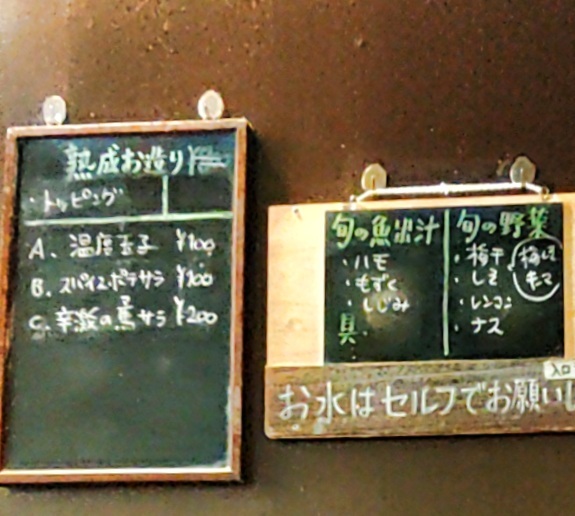 熟成お造り
・トッピング
A. 温度玉子 ¥100
B. スパイスポテサラ ¥100
C. 辛激の蕉サラ ¥200
旬の魚米汁
・ハモ
・もずく
・しじみ
具
旬の野菜
・梅干
・しそ
・レンコン
・ナス
入口
お水はセルフでお願いし